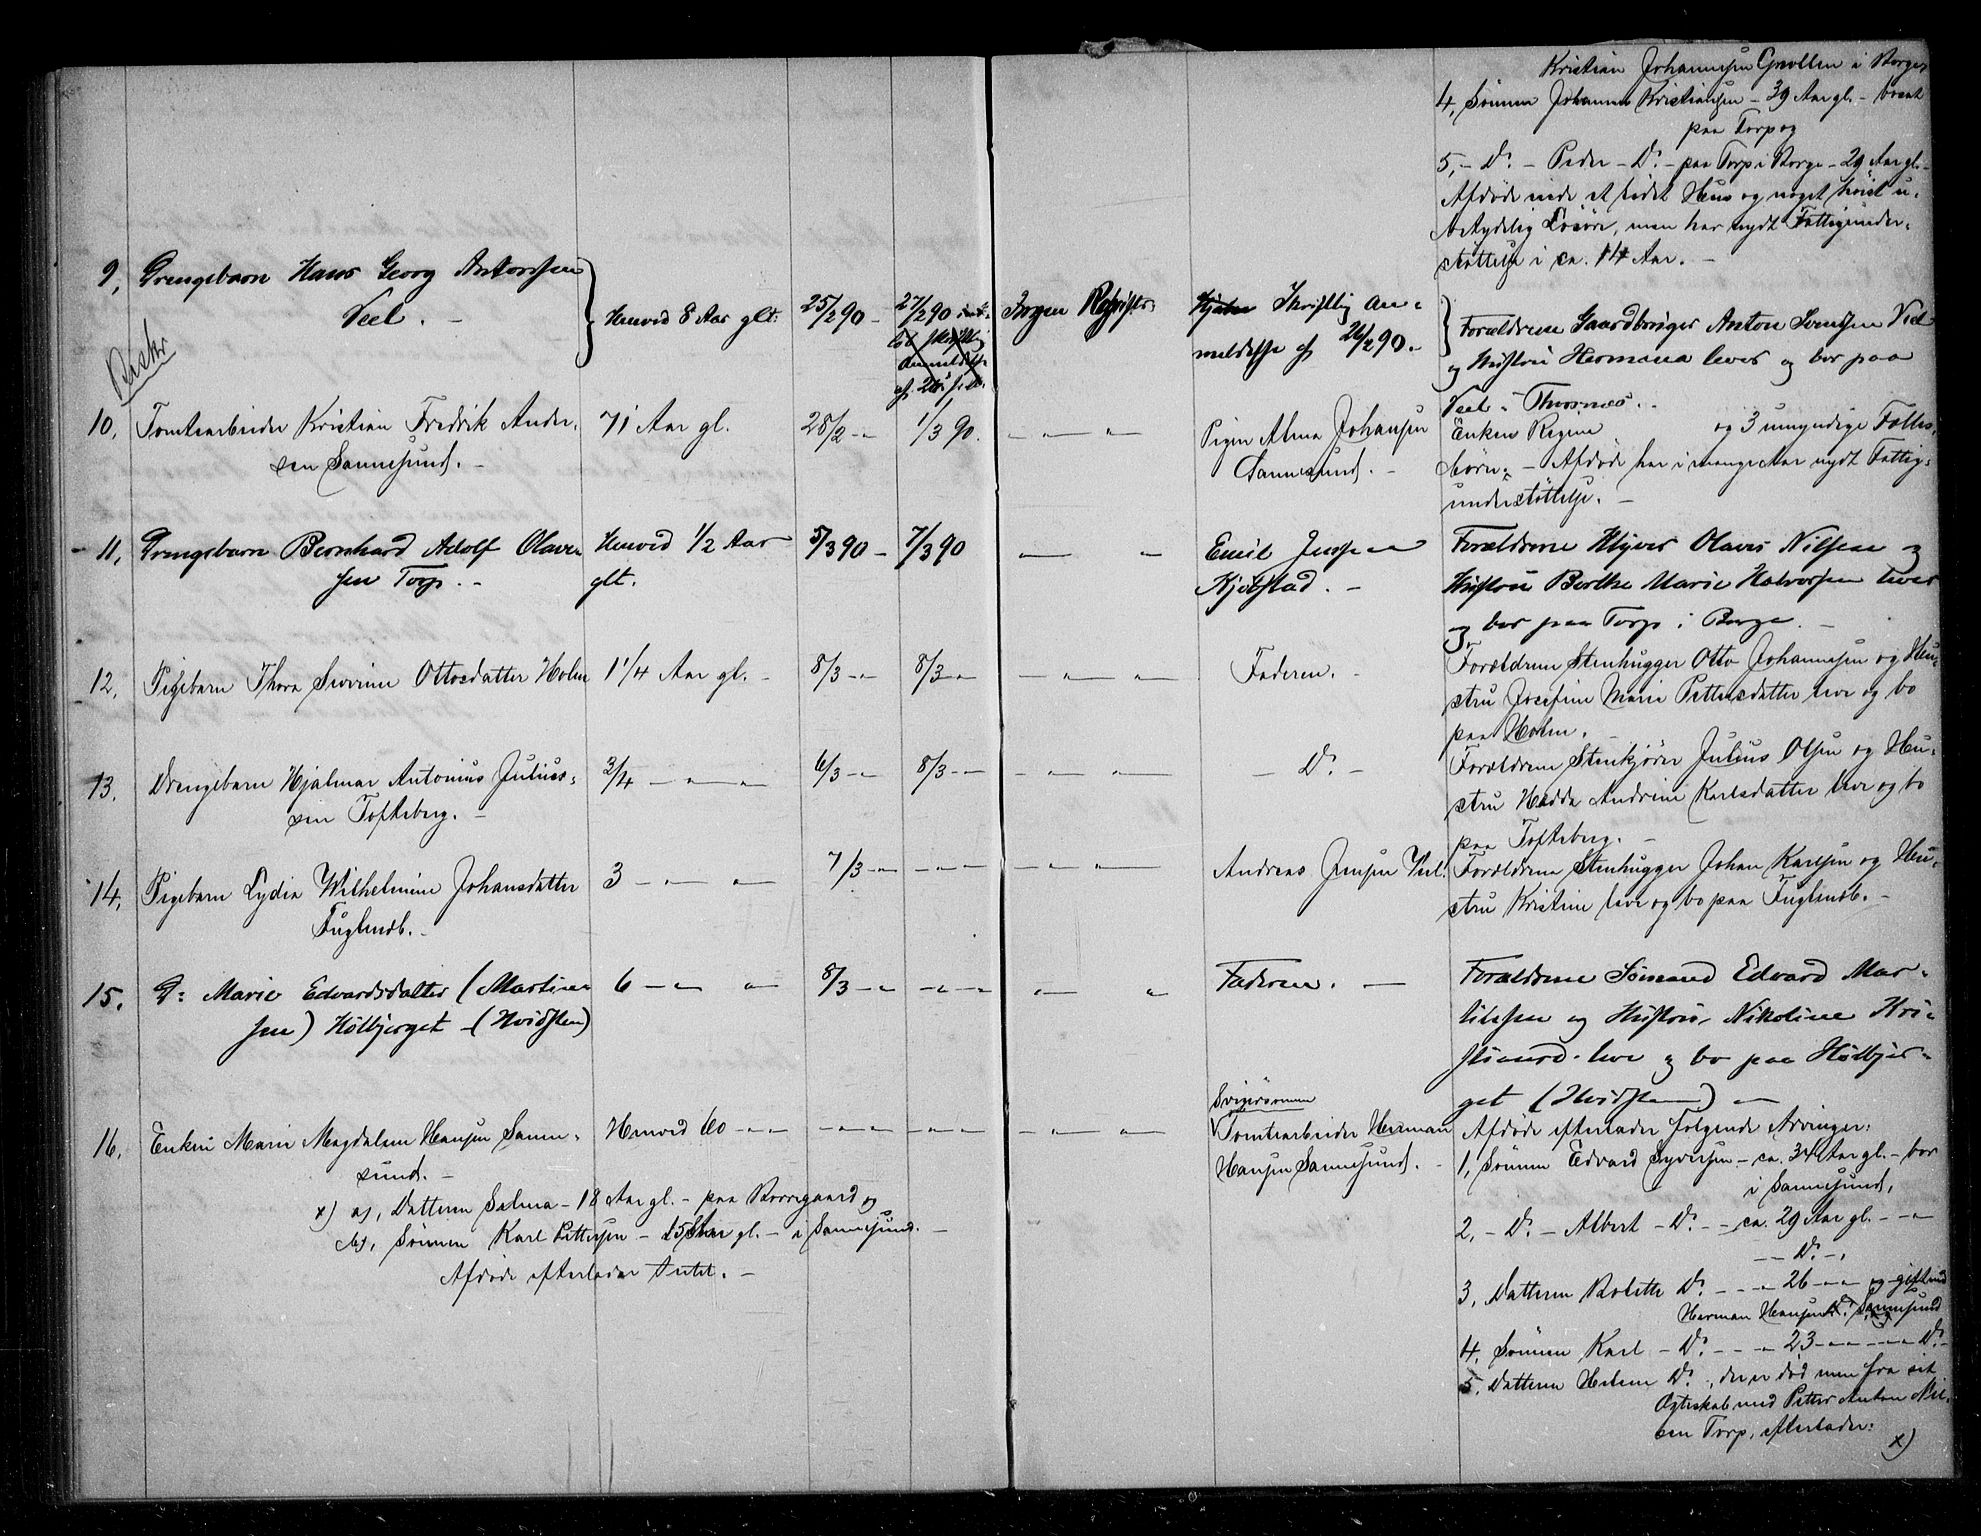 Kristian Johannesen Grøtten i Borge,
4, Sønnen Johannes Kristiansen – 39 Aar gl. – bosat
paa Torp og
5, – Do – Peder – Do – paa Torp i Borge – 29 Aar gl. –
Afdøde eiede et lidet Hus og noget høist u-
betydelig Løsøre, men har nydt Fattigunder-
støttelse i ca. 14 Aar. –
9, Drengebarn Hans Georg Antonsen
Veel. –
Henved 8 Aar glt.
25/2 90 –
27/2 90
skriftlig
Anmeldelse
af 26
Ingen Registr:
Skriftlig An-
meldelse af 26/2 90. –
Forældrene Gaardbruger Anton Svendsen Veel
og Hustru Hermana lever og bor paa
Veel i Thorsnæs. –
10. Tomtearbeider Kristian Fredrik Ander-
sen Sannesund. –
71 Aar gl.
28/2 – "
1/3 90.
– " – " –
Pigen Alma Johansen
Sannesund. –
Enken Regine og 3 umyndige Fælles-
børn. – Afdøde har i mange Aar nydt Fattig-
understøttelse. –
11, Drengebarn Bernhard Adolf Olaves-
sen Torp. –
Henved 1/2 Aar
glt.
5/3 90 –
7/3 90
– "
Emil Jensen
Kjølstad. –
Forældrene Olaves Nilsen og
Hustru Berthe Marie Halvorsen lever
og bor paa Torp i Borge. –
12. Pigebarn Thora Severine Ottosdatter Holm
1 1/4 Aar gl. –
8/3 – "
8/3 – "
– " – " –
Faderen. –
Forældrene Stenhugger Otto Johannesen og Hu-
stru Josefine Marie Pettersdatter leve og bo
paa Holm. –
13. Drengebarn Hjalmar Antonius Julius-
sen Tofteberg. –
3/4 – " – " –
6/3 – "
8/3 – "
– " – " –
– Do –
Forældrene Stenkjører Julius Olsen og Hu-
stru Hedda Andrine Karlsdatter leve og bo
paa Tofteberg. –
14, Pigebarn Lydia Wilhelmine Johansdatter
Fuglendb. –
3 – " – " –
7/3 – "
– " – " –
– " – " –
Andreas Jensen Veel.
Forældrene Stenhugger Johan Karlsen og Hu-
stru Kristine leve og bo paa Fuglendb. –
15. Do Marie Edvardsdatter (Martin-
sen) Hølbjerget – (Hvidsten)
6 – " – "
8/3 – "
– " – " –
– "
Faderen. –
Forældrene Sømand Edvard Mar-
tinsen og Hustru Nikoline Kri-
leve og bo paa Hølbjer-
get (Hvidsten) –
16. Enken Marie Magdalene Hansen Sanne-
sund. –
Henved 60 – " –
– " – " –
– " – " –
– " – " –
Svigersønnen
Tomtearbeider Herman
Hansen Sannesund. –
Afdøde efterlader følgende Arvinger:
1, Sønnen Edvard Syversen – ca. 34 Aar gl. – bor
i Sannesund,
2, – Do – Albert – Do – ca. 29 Aar gl. – "
– Do –,
3, Datteren Bolette Do – " 26 – " – og gift med
Herman Hansen Sannesund
4, Sønnen Karl – Do – " 23 – " – Do –
5, Datteren Helene Do, der er død men fra sit
Ægteskab med Petter Anton Niel-
sen Torp, efterlader:
x)
x) a), Datteren Selma – 18 Aar gl. – paa Borregaard og
b), Sønnen Karl Pettersen – 15 Aar gl. – i Sannesund. –
Afdøde efterlader Intet. –